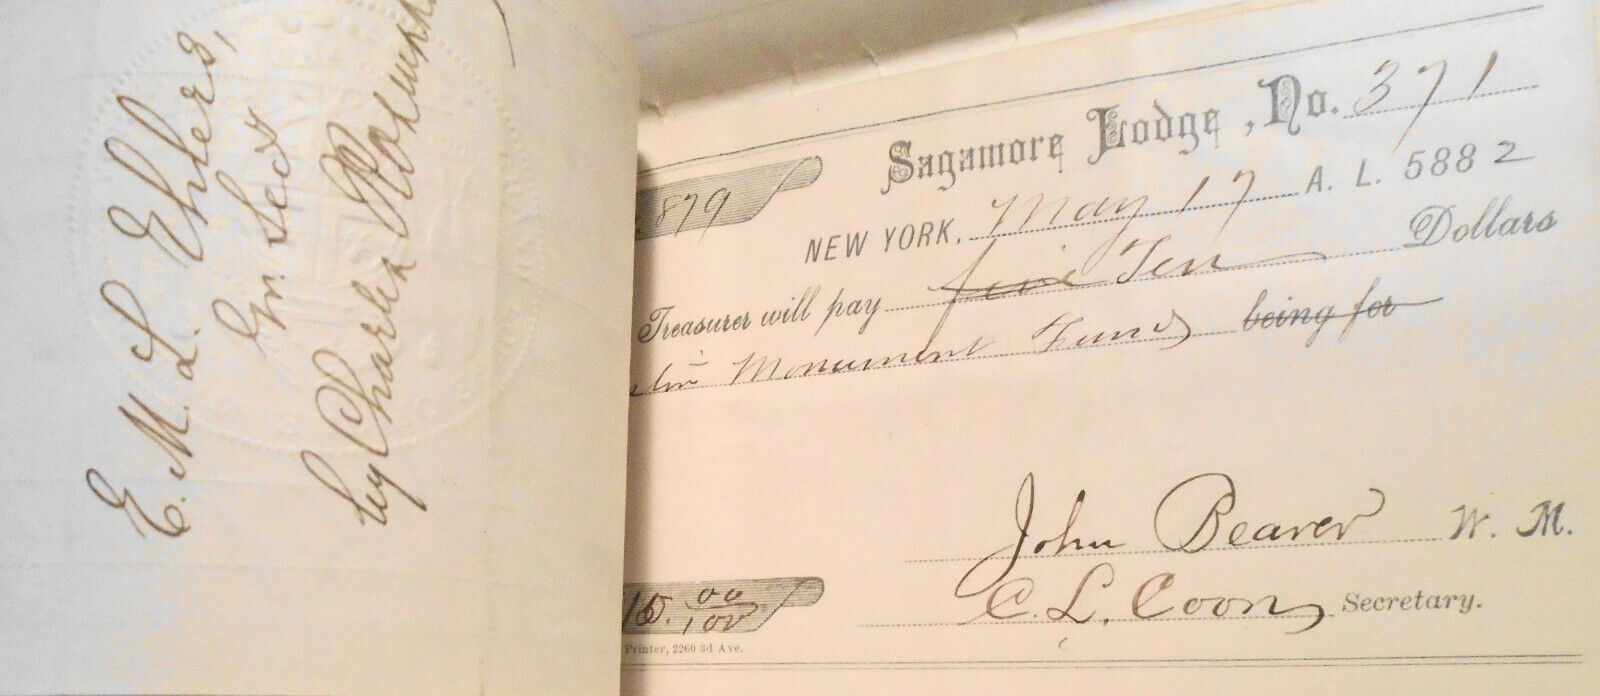 E. M. L. Ehlers,
Gr. Secy
by Charles
Sagamore Lodge, No. 371
879
NEW YORK, May 17 A. L. 5882
Treasurer will pay five Ten Dollars
Monument Fund being for
John Beaver W. M.
C. L. Coon Secretary.
00/100
Printer, 2260 3d Ave.